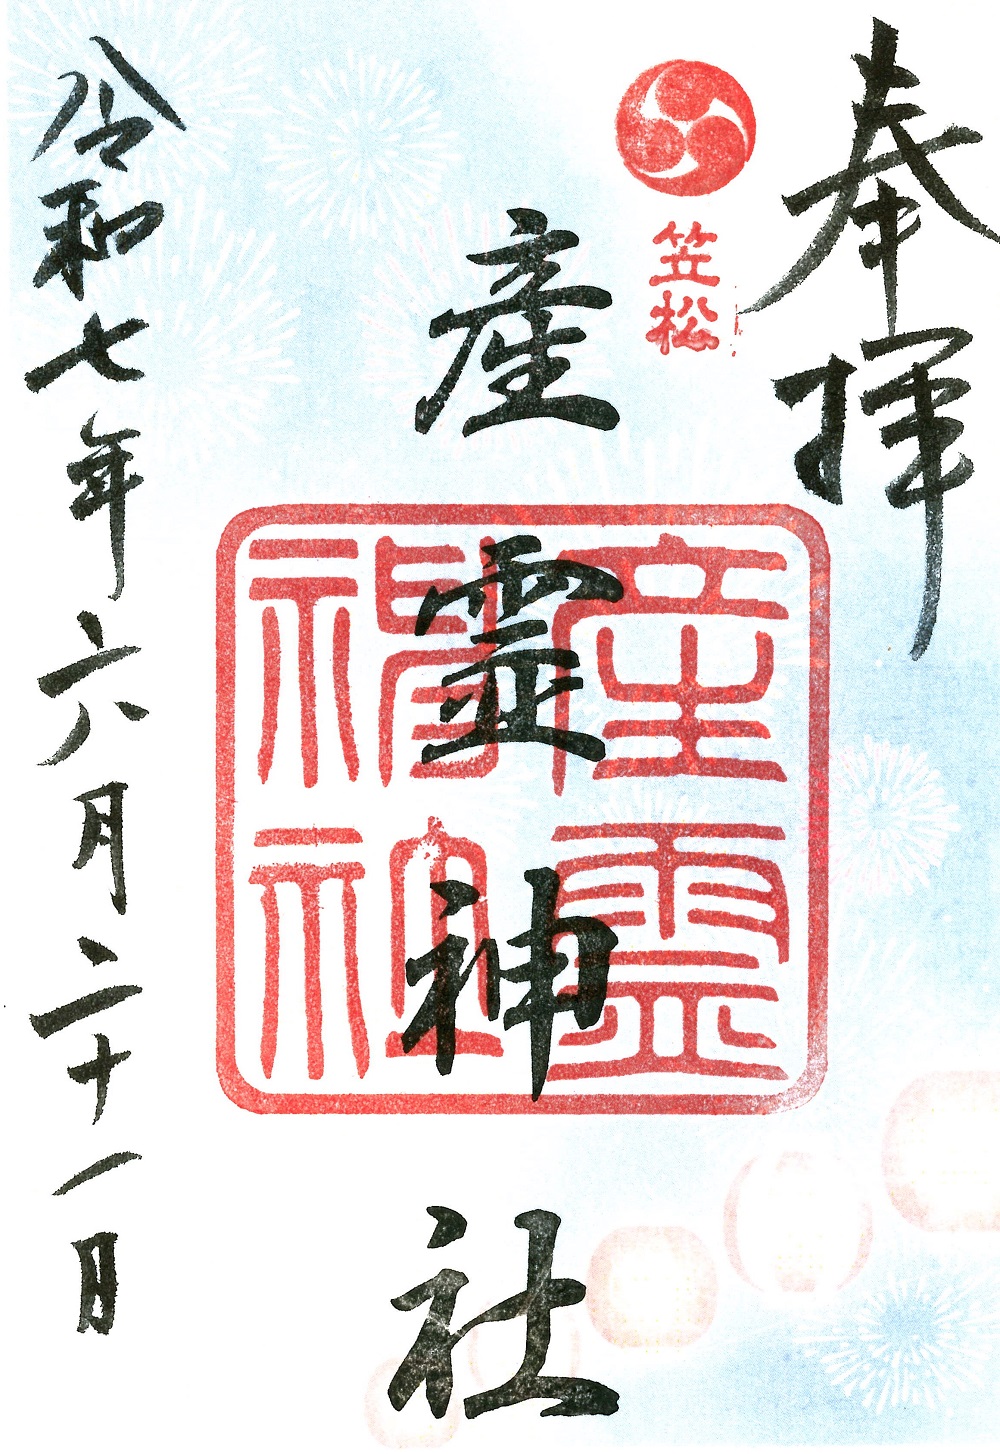 奉拝
笠松
産霊神社
産霊
神社
令和七年六月二十一日